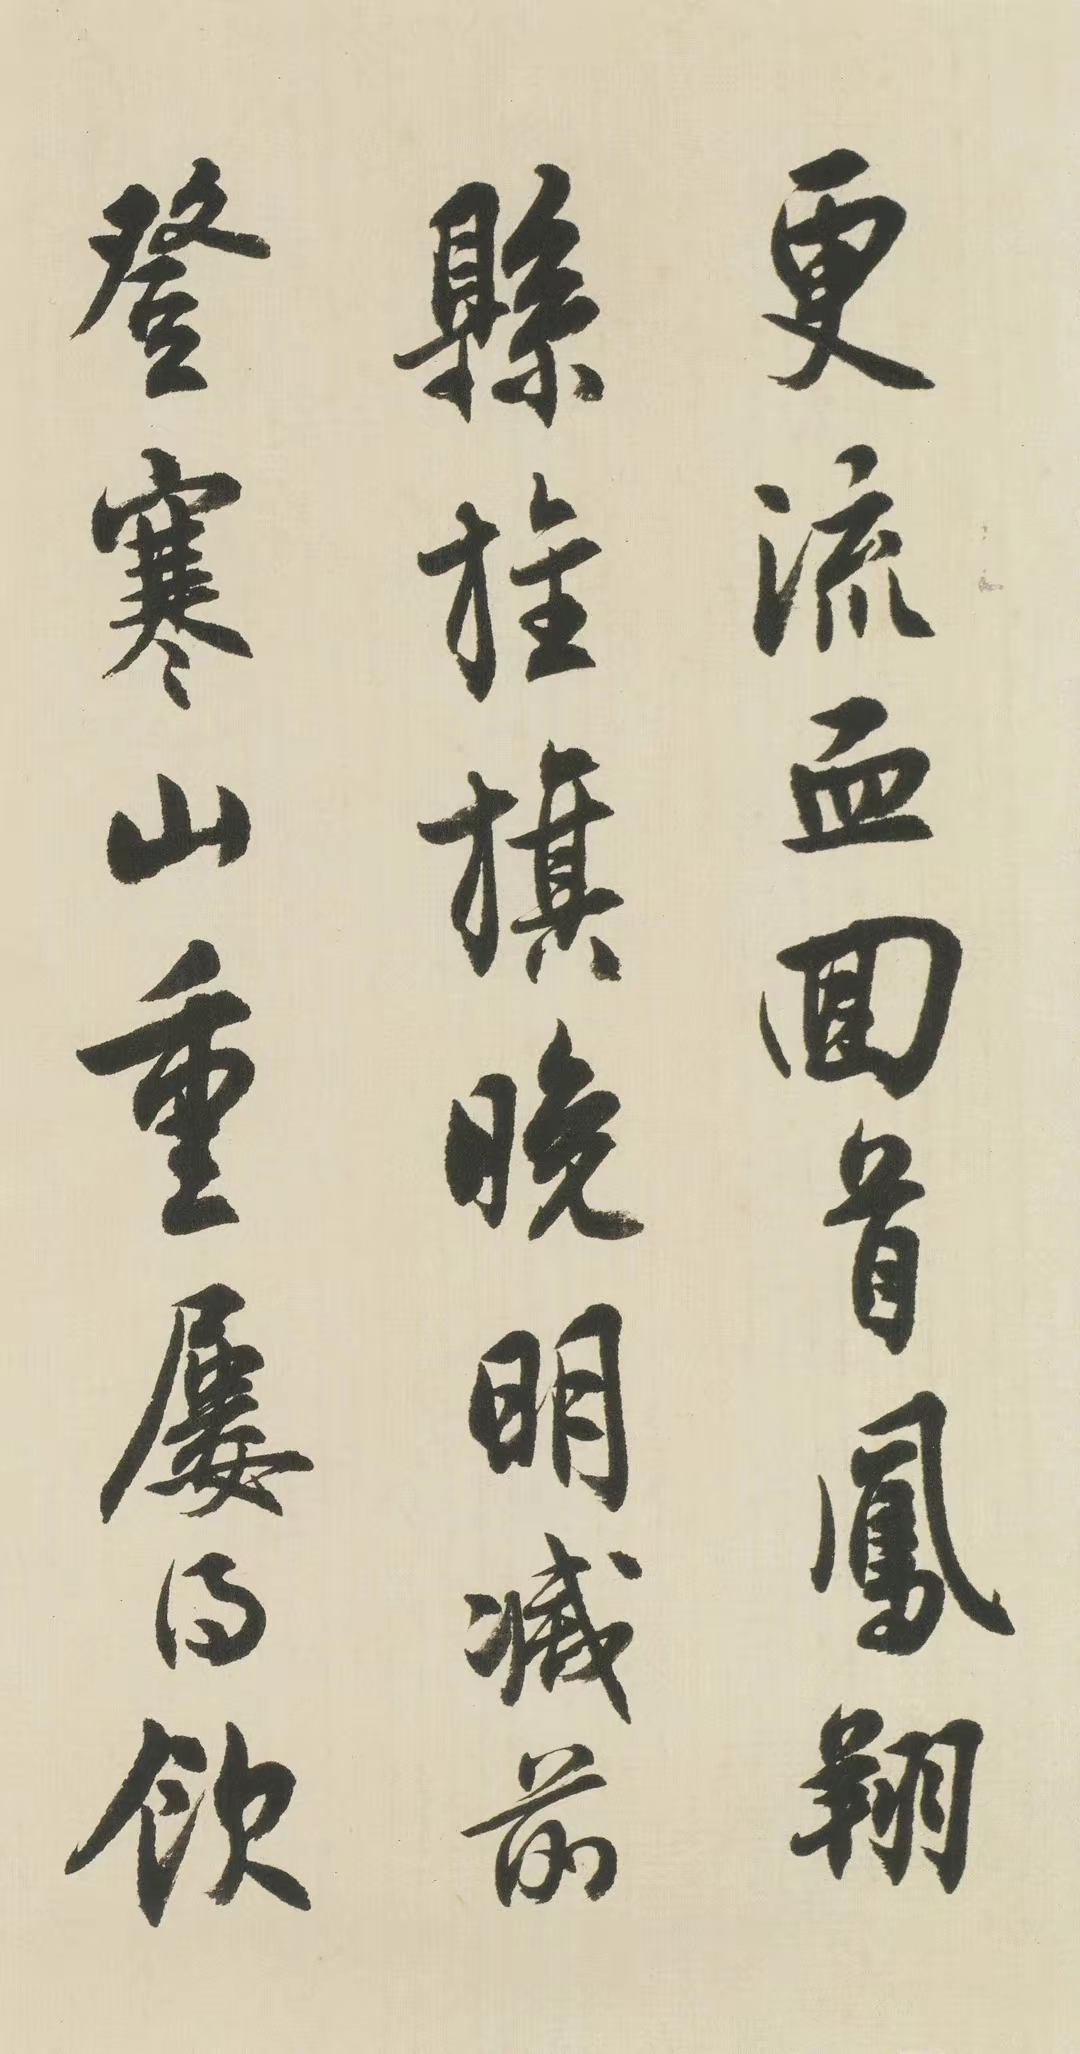 更流血回首鳳翔
縣旌旗晚明滅前
登寒山重屢得飲